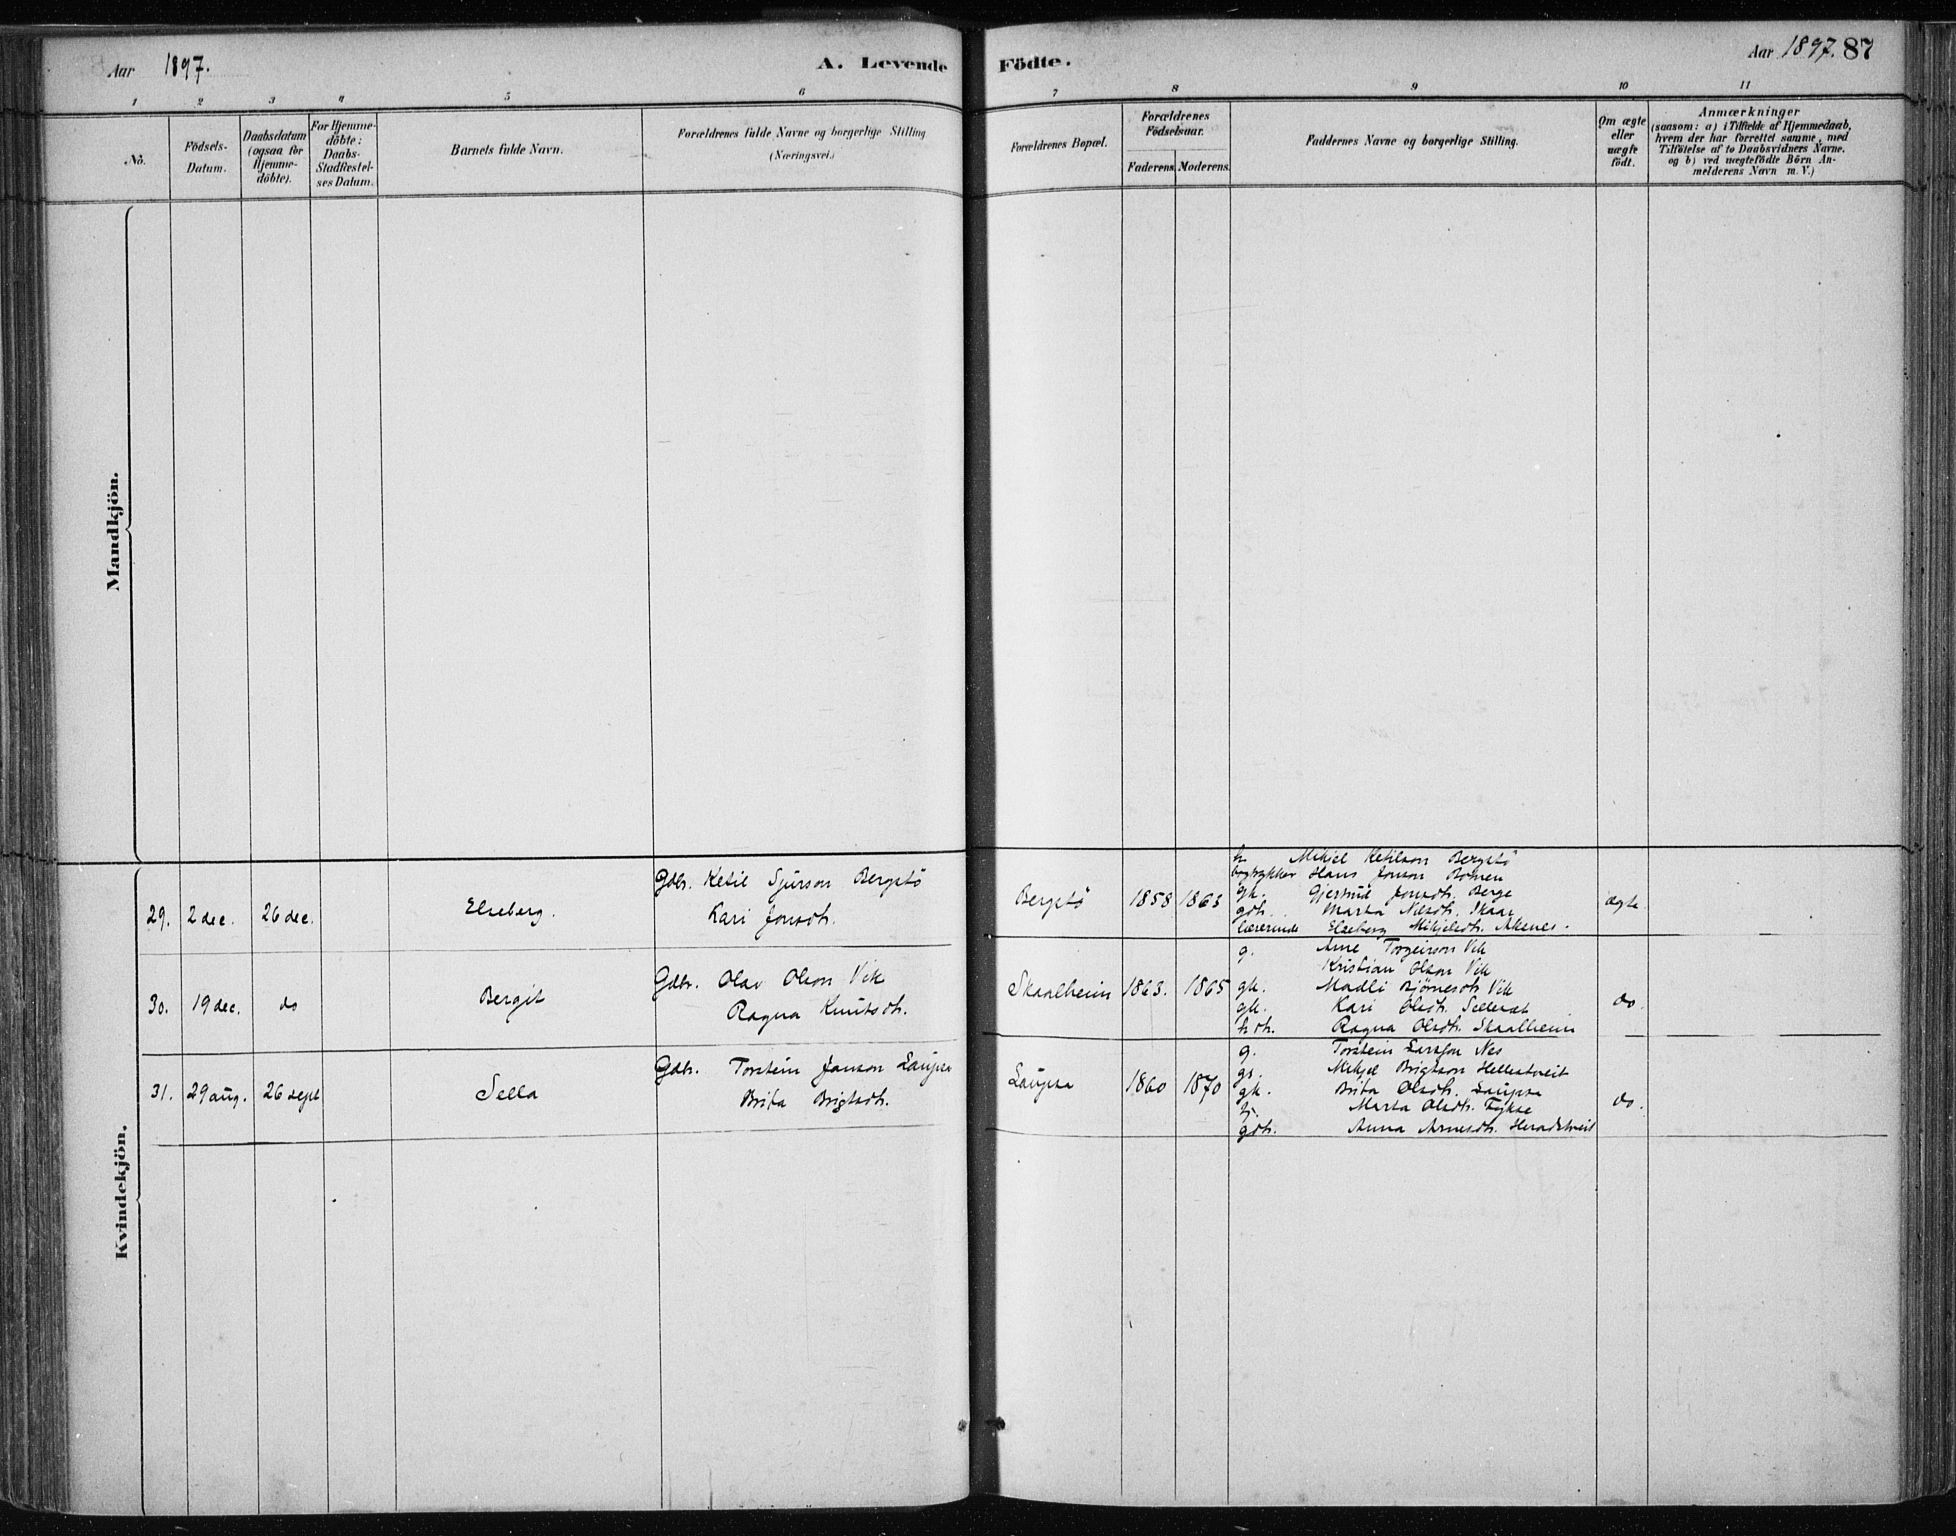 Aar 1897.
A. Levende Födte.
Aar 1897. 87
1 2 3 4 5 6 7 8 9 10 11
No.
Födsels-Datum.
Daabsdatum (ogsaa for Hjemme-döbte).
For Hjemme-döbte: Daabs-Stadfæstel-ses Datum.
Barnets fulde Navn.
Forældrenes fulde Navne og borgerlige Stilling (Næringsvei.)
Forældrenes Bopæl.
Forældrenes Födselsaar.
Faderens. Moderens.
Faddernes Navne og borgerlige Stilling.
Om ægte eller uægte födt.
Anmærkninger
(saasom: a) i Tilfælde af Hjemmedaab,
hvem der har forrettet samme, med
Tilföielse af to Daabsvidners Navne,
og b) ved uægtefödte Börn An-
melderens Navn m. V.)
Mandkjön.
Kvindekjön.
29. 2 dec. 26 dec. Elseberg.
Gdbr. Ketil Sjurson Bergstö
Kari Jonsdtr.
Bergstö 1858 1863
Mikjel Ketilson Bergstö
Hans Jonson Botnen
gk. Gjertrud Jonsdtr. Berge
gdtr. Marta Nilsdtr. Skaar
lærerinde Elseberg Mikjelsdtr. Aksnes.
ægte.
30. 19 dec. do Bergit
Gdbr. Olav Olson Vik
Ragna Knutsdtr.
Skaalheim 1863. 1865
g. Arne Torgeirson Vik
Kristian Olson Vik
gk. Madli Bjørnesdtr. Vik
gk. Kari Olsdtr.
Ragna Olsdtr. Skaalheim
do.
31. 29 aug. 26 sept Sella
Gdbr. Torstein Janson Laupsa
Brita Brigtsdtr.
Laupsa 1860 1870
g. Torstein Larsson Nes
gs. Mikjel Brigtson Hellestveit
gk. Brita Olsdtr. Laupsa
tj. Marta Olsdtr. Fykse
gdtr. Anna Arnesdtr. Heradstveit
do.